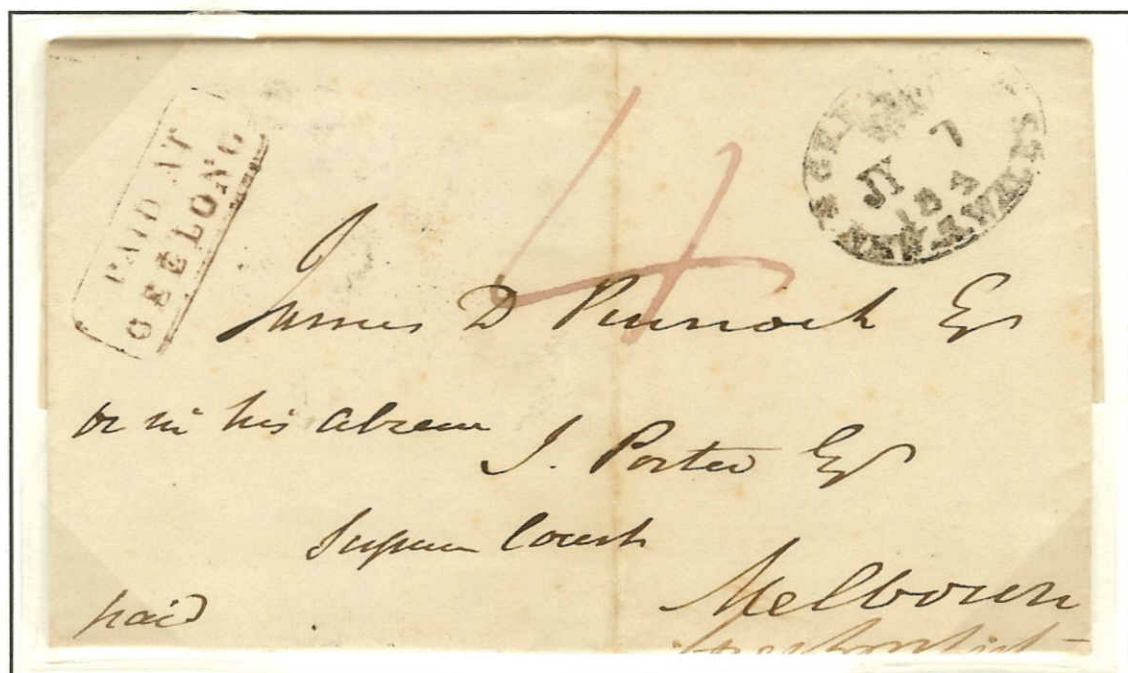 PAID AT
GEELONG
JY 7
184
NEW.S.WALES
4
James D Pinnock Esq
or in his absence
J. Porter Esq
Supreme Court
Melbourne
paid